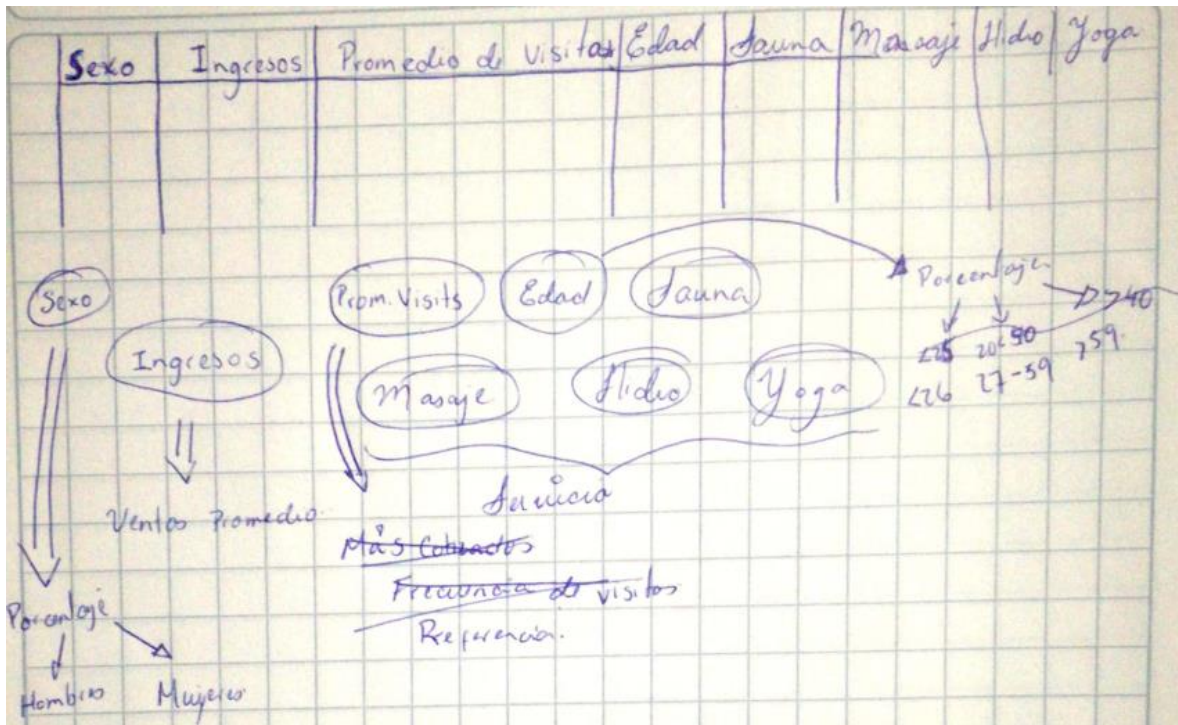 Sexo Ingresos Promedio de Visitas Edad Sauna Massaje Hidro Yoga
Sexo
Ingresos
Prom. Visits Edad Sauna
Masaje Hidro Yoga
Porcentaje
<25 20-50 >40
<26 27-59 >59
Servicio
Ventas Promedio
Más
Frecuencia de visitas
Preferencia.
Porcentaje
Hombres Mujeres